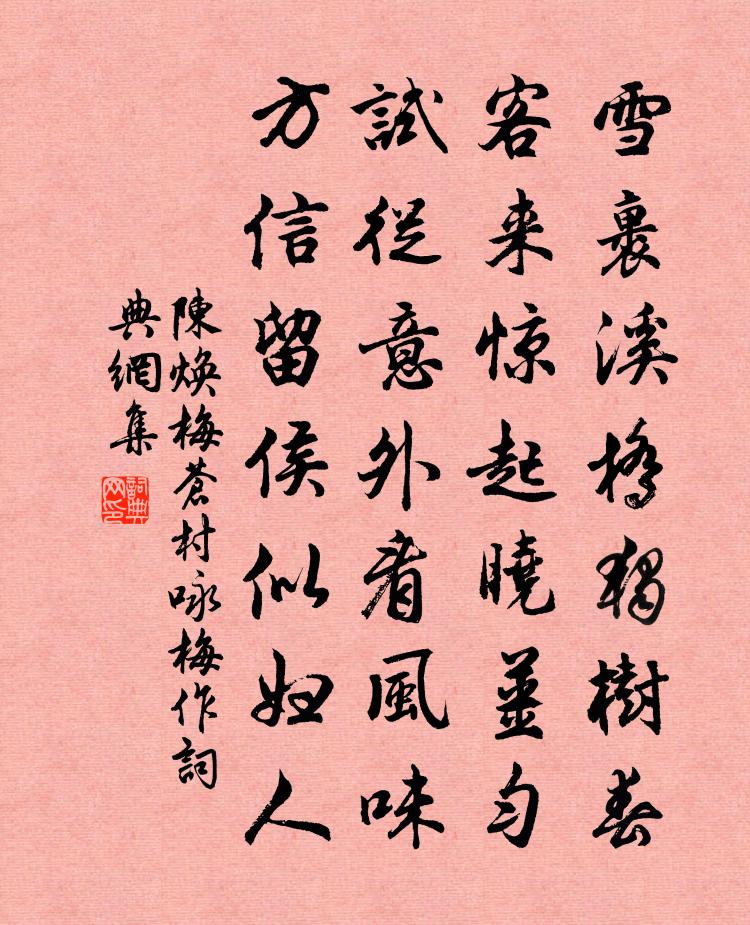 雪裏溪橋獨樹春
客来惊起曉薑勻
試從意外看風味
方信留侯似妇人
陳焕梅蒼村咏梅作詞
典網集
詞典
网印